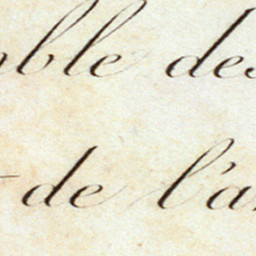 ble des
de l'a